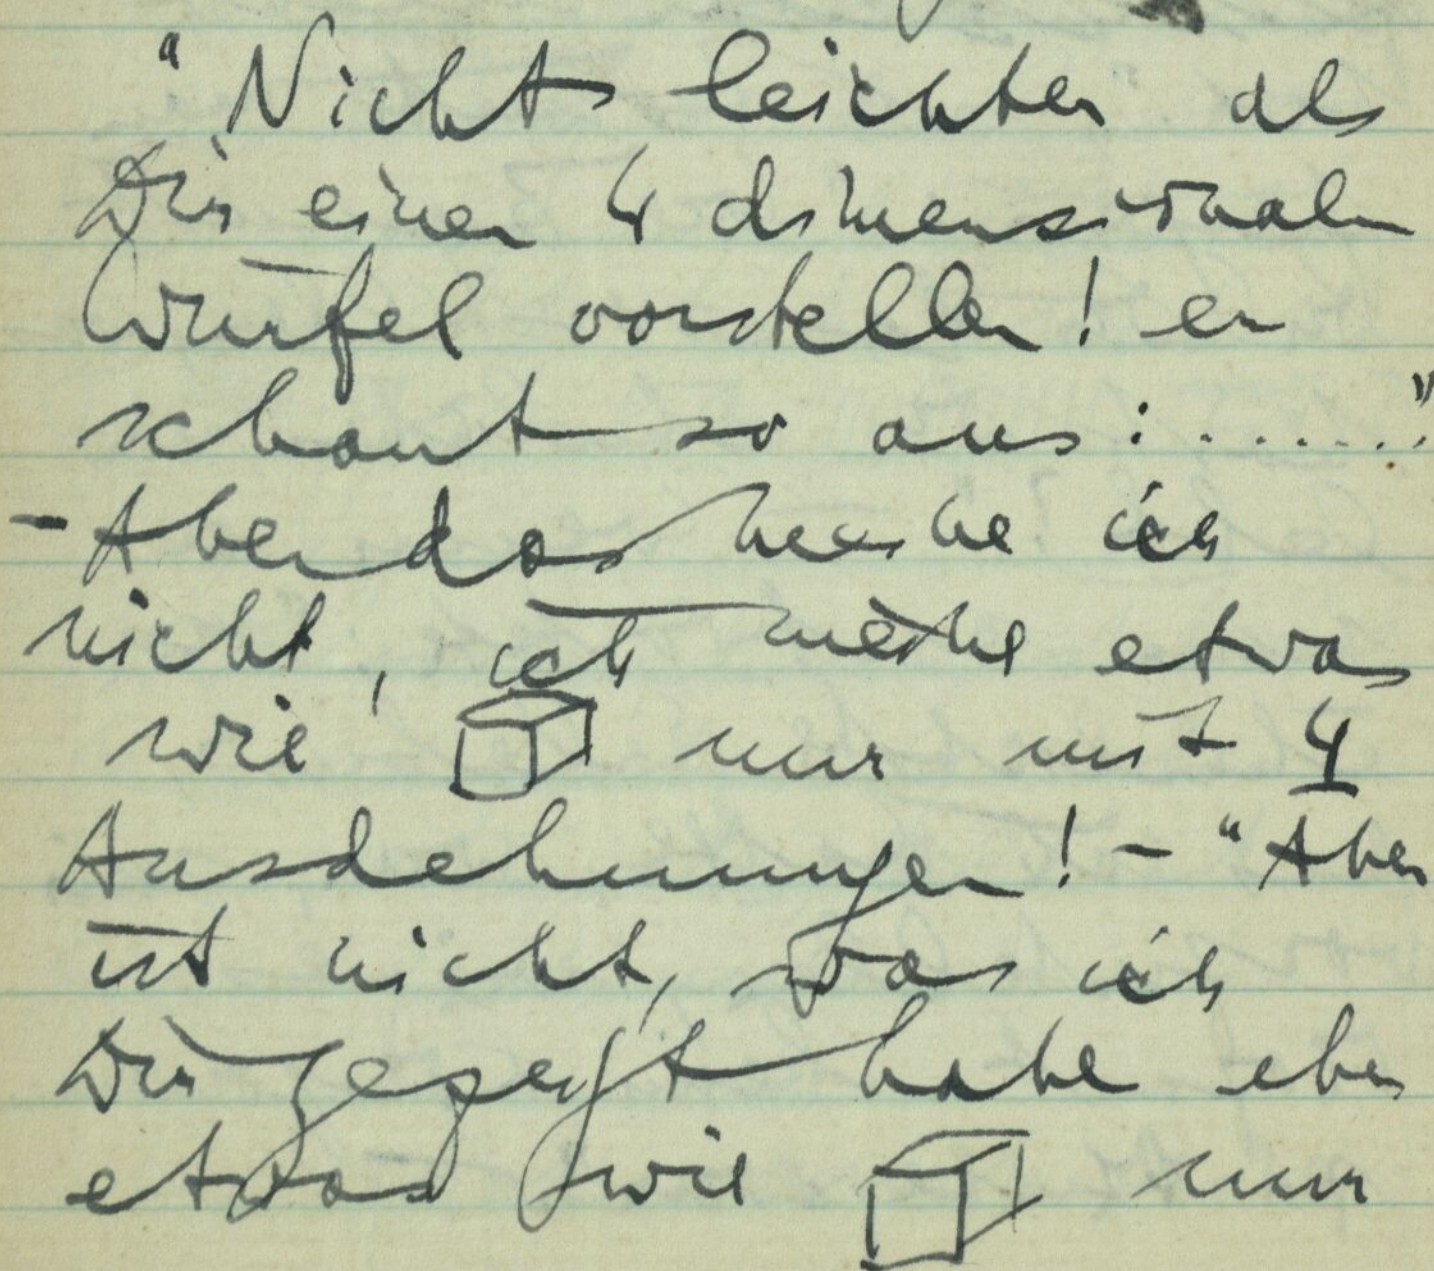 "Nichts leichter als
Dir einen 4 dimensionalen
Würfel vorstellen! er
schaut so aus: ......"
- Aber das meine ich
nicht, ich meine etwas
wie nur mit 4
Ausdehnungen! – "Aber
ist nicht, was ich
Dir gezeigt habe eben
etwas wie nur